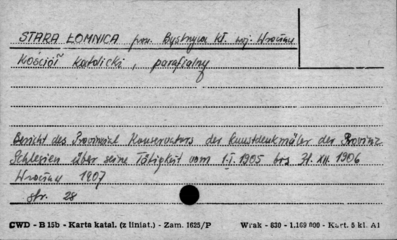 STARA ŁOMNICA pow. Bystrzyca Kł. woj. Wrocław
Kościół katolicki, parafialny
Bericht des Provinzial Konservators der Kunstdenkmäler der Provinz
Schlesien über seine Tätigkeit vom 1.I.1905 bis 31.XII.1906
Wrocław 1907
str. 28
CWD - B 15b - Karta katal. (z liniat.) - Zam. 1625/P Wrak - 630 - 1.169 000 - Kart. 5 kl. A1